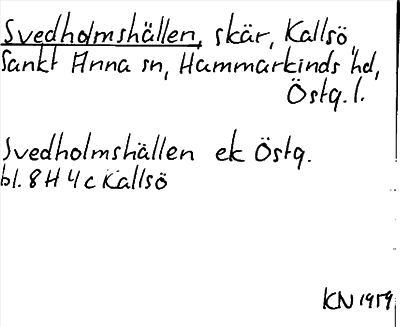 Svedholmshällen, skär, Kallsö,
Sankt Anna sn, Hammarkinds hd,
Östg. l.
Svedholmshällen ek Östg.
bl. 8 H 4 c Kallsö
KN 1959